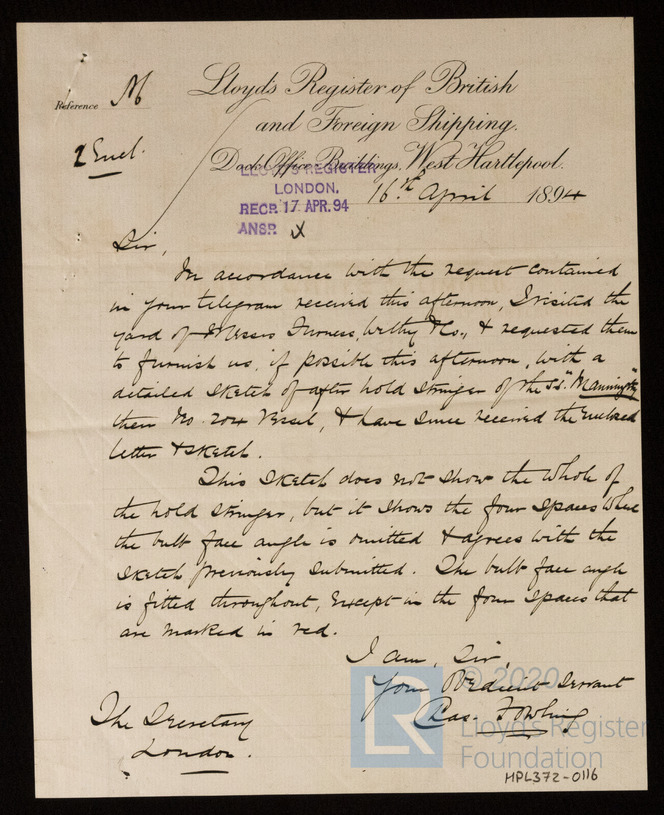 Lloyd's Register of British
Reference M
and Foreign Shipping.
2 Encl.
Dock Office Buildings, West Hartlepool.
LLOYD'S REGISTER
LONDON.
RECD. 17 APR. 94
ANSD.
16th April 1894
Sir,
In accordance with the request contained
in your telegram received this afternoon, I visited the
yard of Messrs Furness, Withy & Co., & requested them
to furnish us, if possible this afternoon, with a
detailed sketch of after hold stringer of the S.S. "
their No. 204 Vessel, & have since received the Enclosed
letter & sketch.
This sketch does not show the whole of
the hold stringer, but it shows the four spaces where
the bulb face angle is omitted & agrees with the
sketch previously submitted. The bulb face angle
is fitted throughout, Except in the four spaces that
are marked in red.
I am, Sir,
Your Obedient Servant
The Secretary
London.
© 2020
LR
Lloyd's Register
Foundation
HPL372-0116